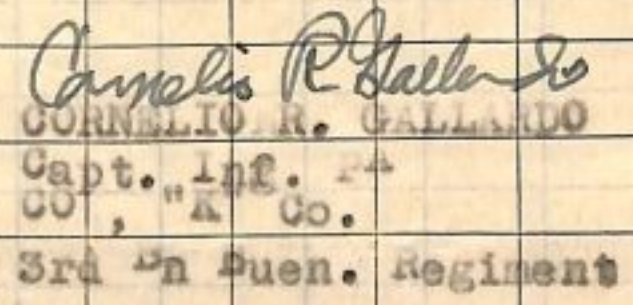 Cornelio R Gallardo
CORNELIO R. GALLARDO
Capt. Inf. PA
CO , "K" Co.
3rd Bn Buen. Regiment